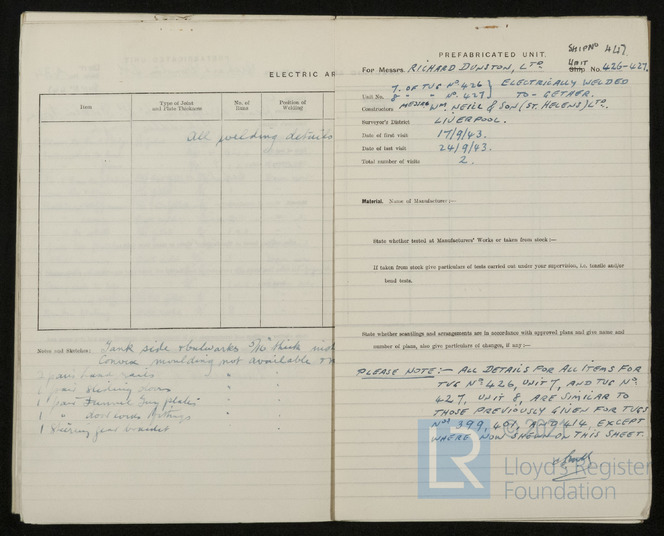 ELECTRIC AR
Item
Type of Joint and Plate Thickness
No. of Runs
Position of Welding
All welding details
Notes and Sketches:
Tank side & bulwarks 5/16" thick
Convex moulding not available
2 pairs hand rails "
1 pair sliding doors "
1 pair Funnel Guy plates "
1 " door fittings "
1 Steering gear bracket "
PREFABRICATED UNIT.
SHIP NO 417.
For Messrs. RICHARD DUNSTON, LTD
UNIT
Ship No. 426-427.
Unit No. 7. OF TUG NO. 426 } ELECTRICALLY WELDED
8 " " NO. 427 } TO-GETHER.
Constructors MESSRS WM. NEILL & SON (ST. HELENS) LTD.
Surveyor's District LIVERPOOL.
Date of first visit 17/9/43.
Date of last visit 24/9/43.
Total number of visits 2.
Material. Name of Manufacturer:—
State whether tested at Manufacturers' Works or taken from stock:—
If taken from stock give particulars of tests carried out under your supervision, i.e. tensile and/or
bend tests.
State whether scantlings and arrangements are in accordance with approved plans and give name and
number of plans, also give particulars of changes, if any:—
PLEASE NOTE:- ALL DETAILS FOR ALL ITEMS FOR
TUG NO. 426, UNIT 7, AND TUG NO.
427, UNIT 8, ARE SIMILAR TO
THOSE PREVIOUSLY GIVEN FOR TUGS
NOS 399, 401, AND 414, EXCEPT
WHERE NOW SHEWN ON THIS SHEET.
LR
Lloyd's Register
Foundation